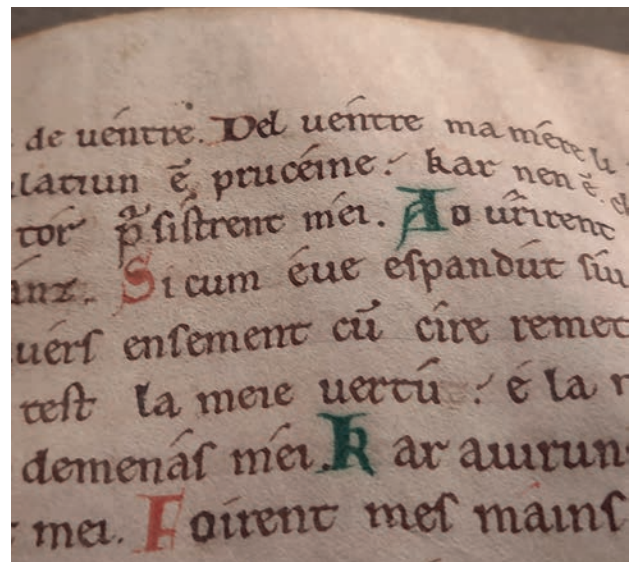 de uéntre. Del uentre ma mére li
latiun ē prucéine. kar nen ē. 
tór p̄ sistrent méi. Ao uŕirent
ánz. Si cum éue espandút siu
uérs ensement cū círe remet
test la meie uertú. é la
demenás méi. kar auirun
mei. Foirent mes mains